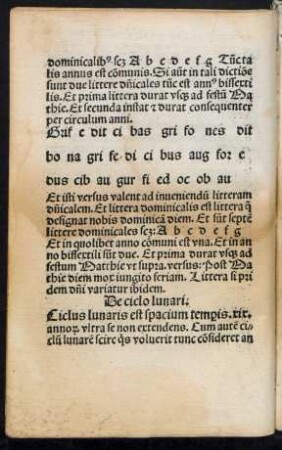 dominicalibꝰ scꝫ A b c d e f g Tūc ta
lis annus est cōmunis. Si aūt in tali dictiōe
sunt due littere dn̄icales tūc est annꝰ bissexti
lis. Et prima littera durat vsqꝫ ad festū Ma
thie. Et secunda instat ⁊ durat consequenter
per circulum anni.
Grif e dit ci bas gri fo nes dit
bo na gri fe di ci bus aug for e
dus cib au gur fi ed oc ob au
Et isti versus valent ad inueniendū litteram
dn̄icalem. Et littera dominicalis est littera q̄
designat nobis dominicā diem. Et sūt septē
littere dominicales scꝫ: A b c d e f g
Et in quolibet anno cōmuni est vna. Et in an
no bissextili sūt due. Et prima durat vsqꝫ ad
festum Matthie vt supra. versus: Post Ma
thie diem mox iungito feriam. Littera si pri
dem dn̄i variatur ibidem.
De ciclo lunari.
Ciclus lunaris est spacium tempis .xix.
annoꝝ vltra se non extendens. Cum autē ci
clū lunarē scire qͥs voluerit tunc cōsideret an